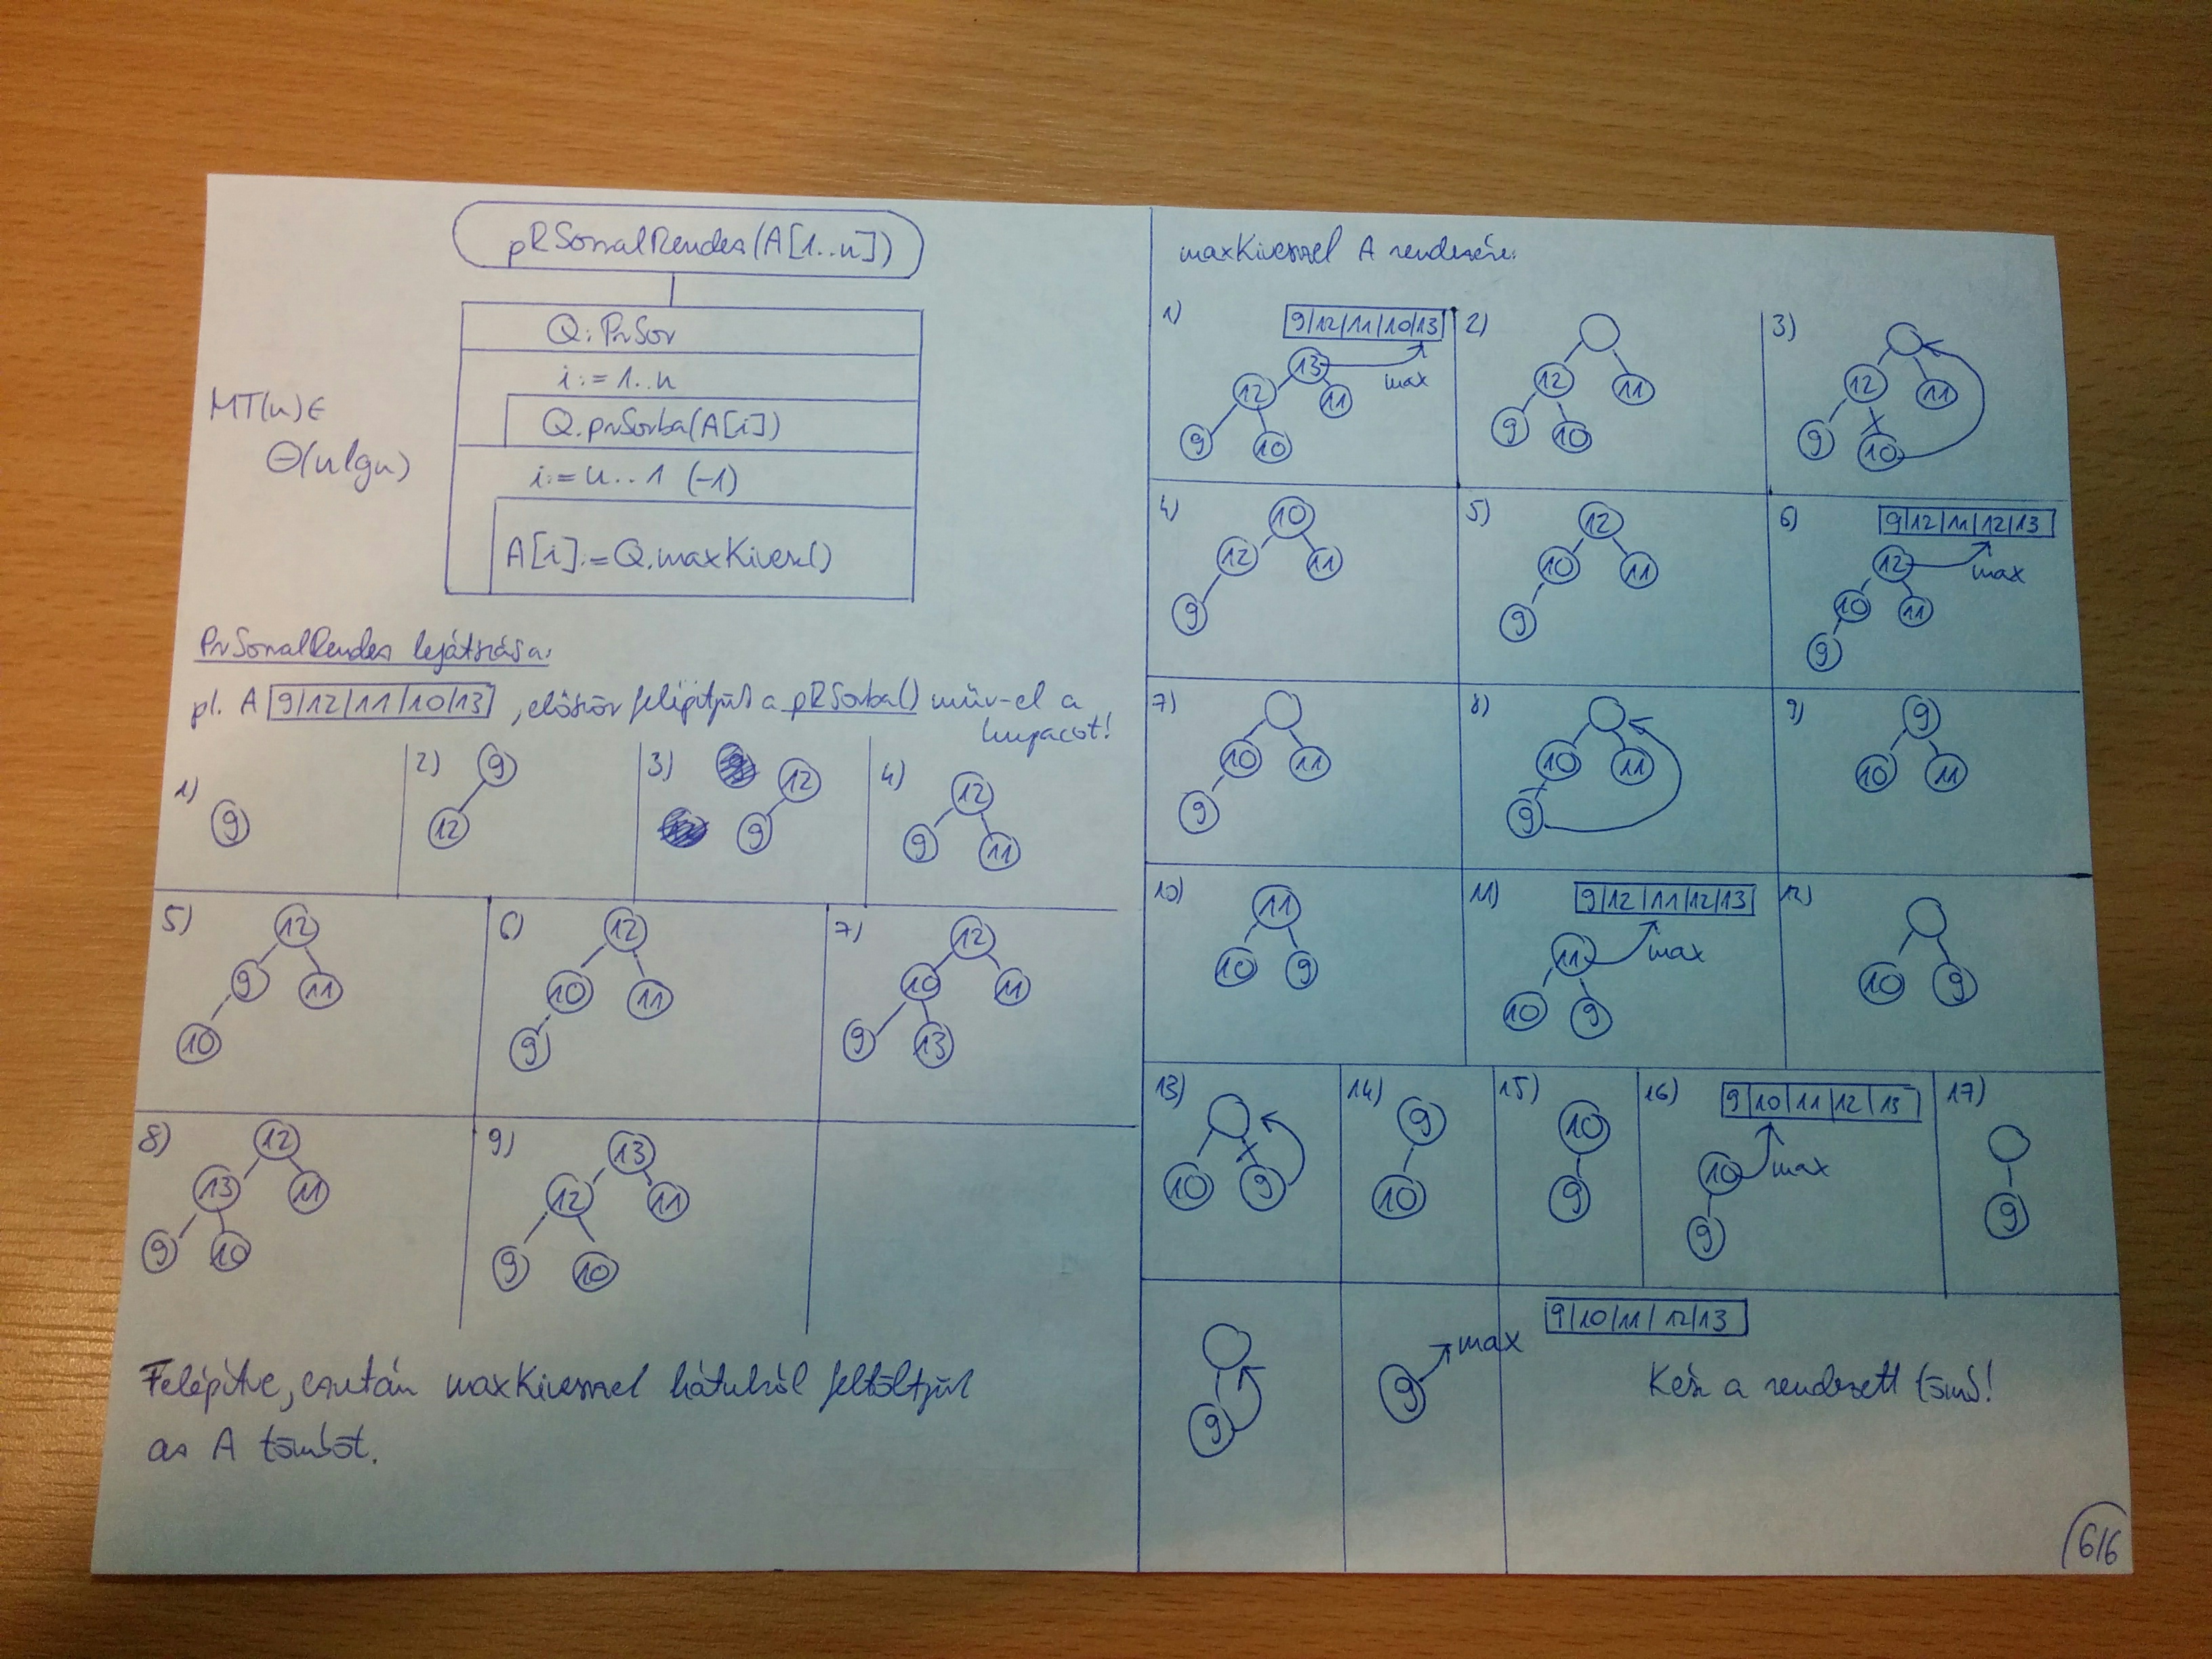 pRSorralRendez(A[1..n])
Q: PrSor
i := 1..n
Q.prSorba(A[i])
i := n..1 (-1)
A[i] := Q.maxKivesz()
MT(n) ∈
Θ(n lg n)
PrSorralRendez lejátszása:
pl. A 9|12|11|10|13 , először felépítjük a pRSorba() műv-el a
kupacot!
1)
9
2)
9
12
3)
12
9
4)
12
9 11
5)
12
9 11
10
6)
12
10 11
9
7)
12
10 11
9 13
8)
12
13 11
9 10
9)
13
12 11
9 10
Felépítve, ezután maxKivesszel hátulról feltöltjük
az A tömböt.
maxKivesszel A rendezése:
1) 9|12|11|10|13
13 max
12 11
9 10
2)
12 11
9 10
3)
12 11
9 10
4)
10
12 11
9
5)
12
10 11
9
6) 9|12|11|12|13
12 max
10 11
9
7)
10 11
9
8)
10 11
9
9)
9
10 11
10)
11
10 9
11) 9|12|11|12|13
11 max
10 9
12)
10 9
13)
10 9
14)
9
10
15)
10
9
16) 9|10|11|12|13
10 max
9
17)
9
9
9 max
9|10|11|12|13
Kész a rendezett tömb!
6/6